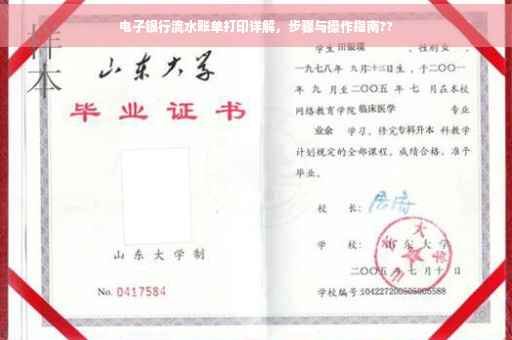 电子银行流水账单打印详解，步骤与操作指南??
样本
山东大学
毕业证书
山东大学制
No. 0417584
学生 田银瑞 ，性别 女 ，
一九七八年 九月十三日生，于二〇〇一
年 九 月至二〇〇五 年 七 月在本校
网络教育学院 临床医学 专业
业余 学习，修完专科升本 科教学
计划规定的全部课程，成绩合格，准予
毕业。
校 长：
学 校： 山东大学
二〇〇五 年 七 月 十 日
学校编号：104227200505005588